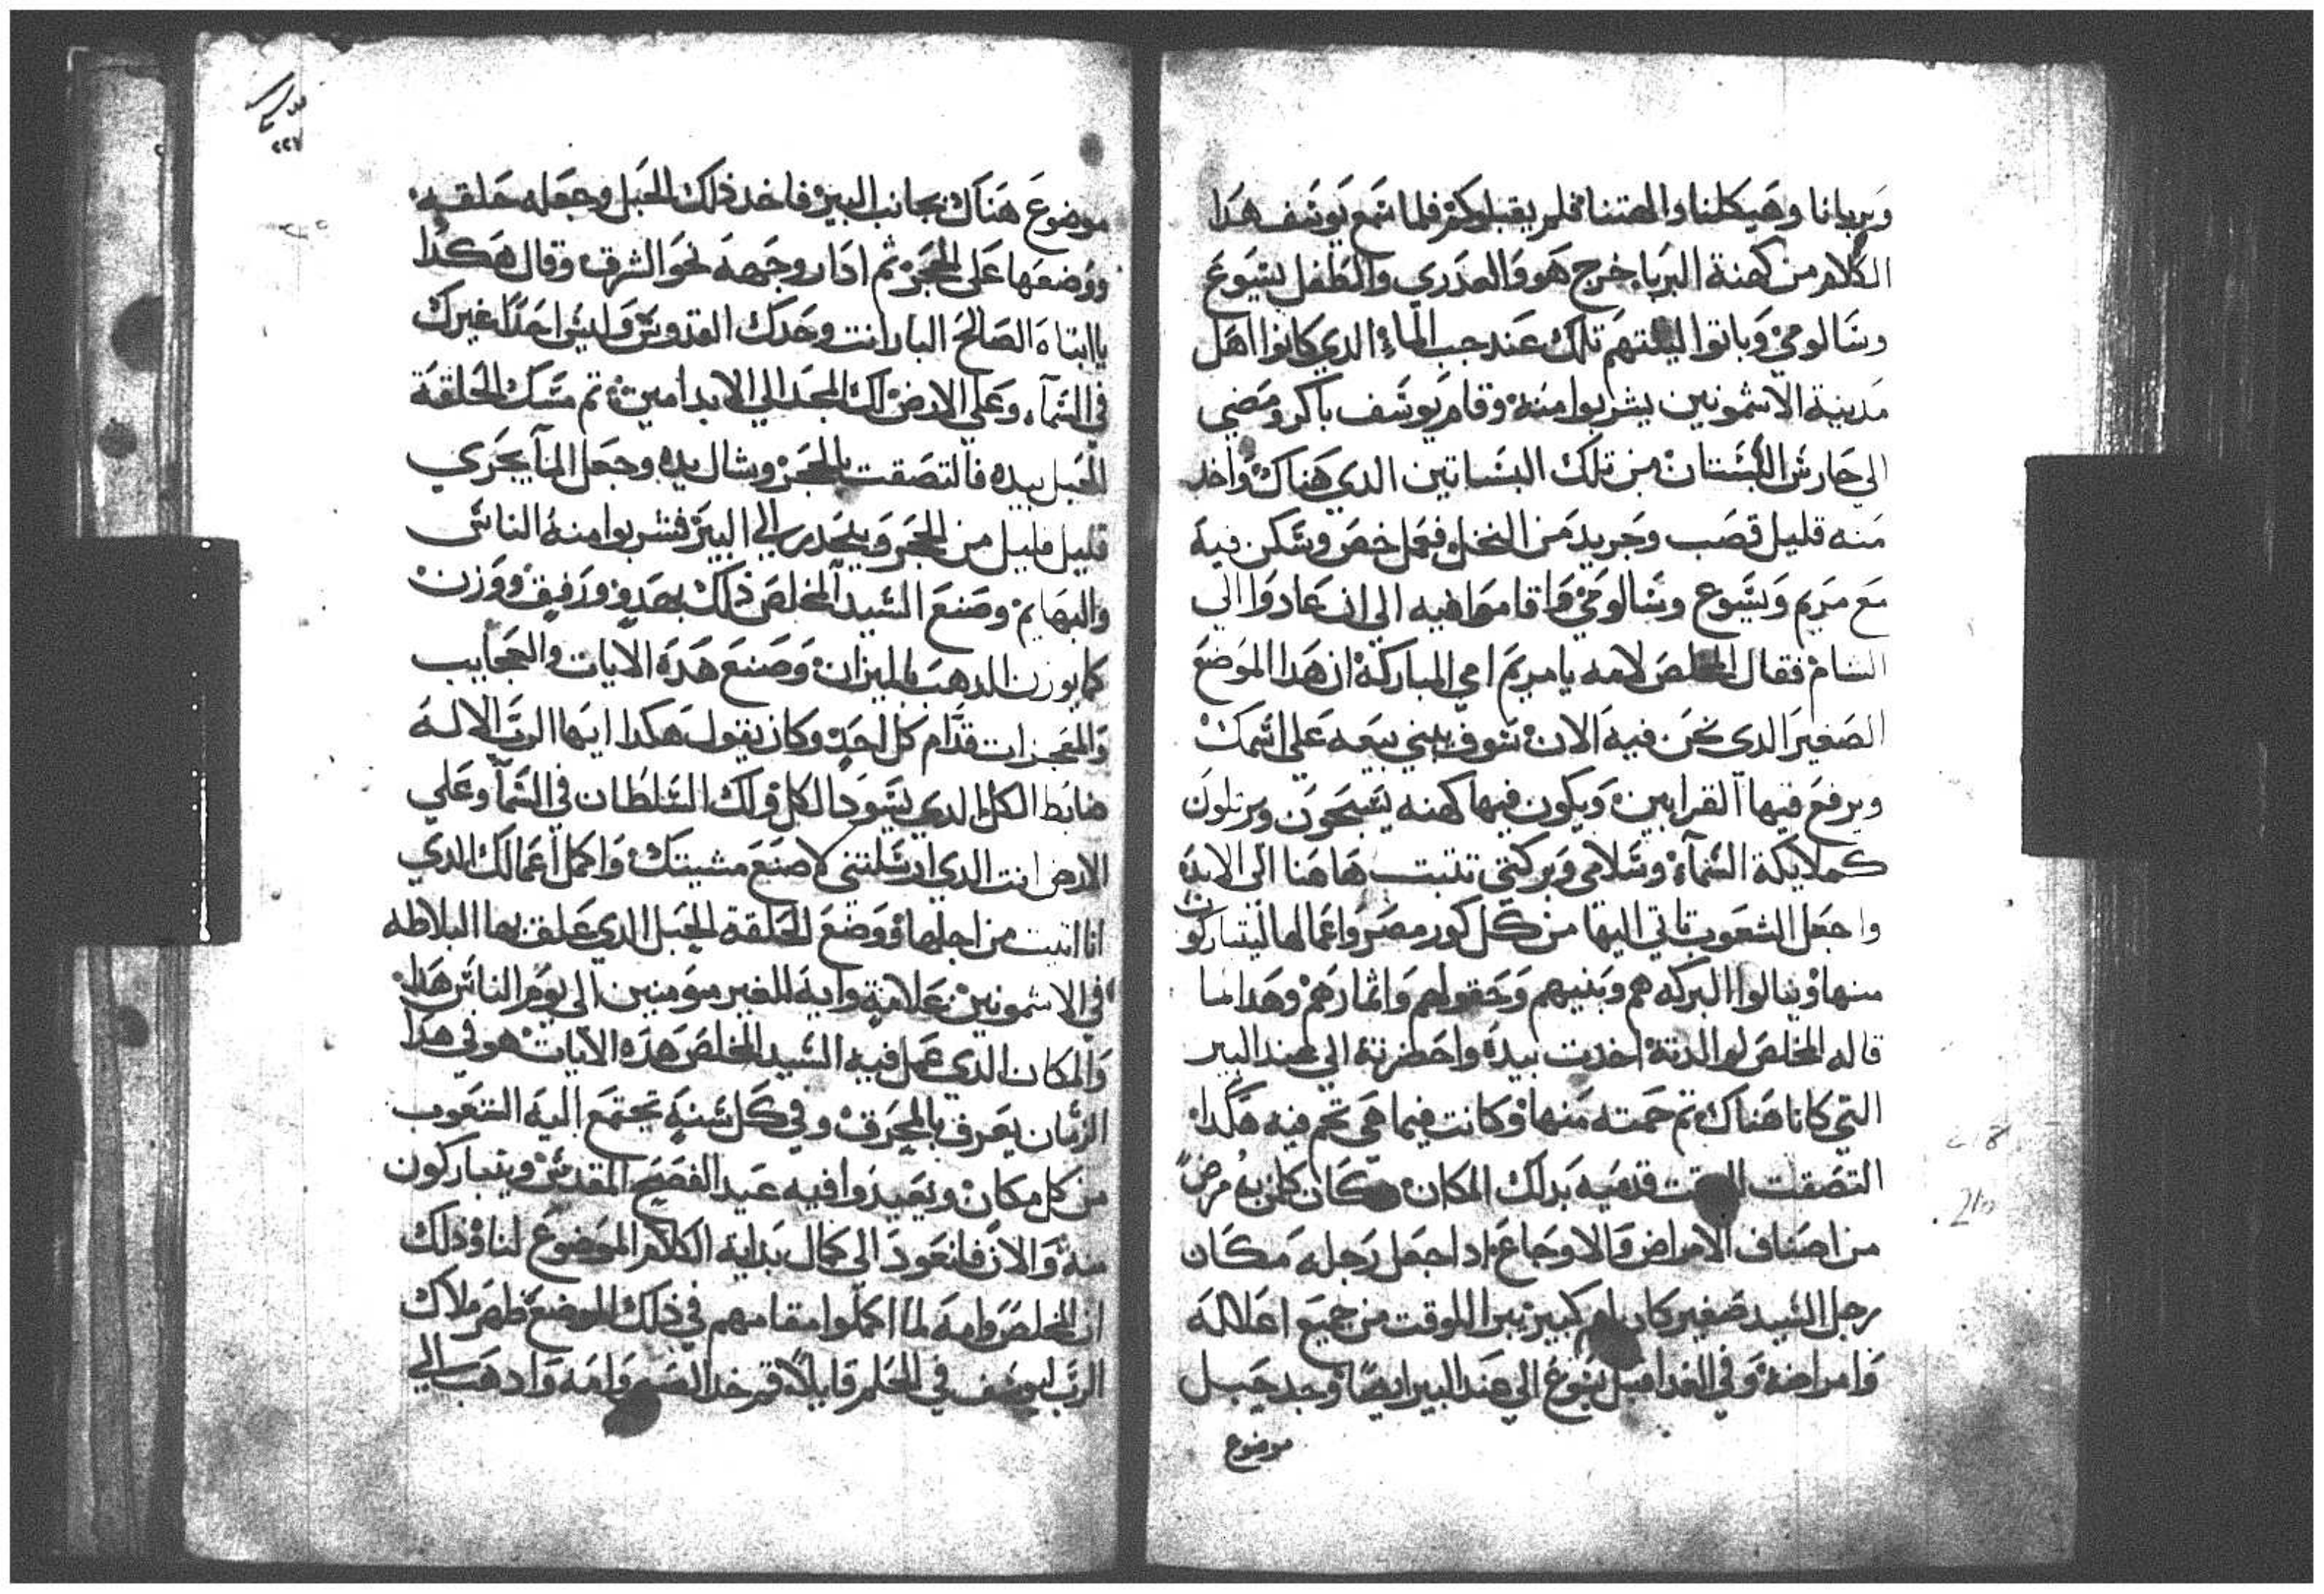 وبربانا وهيكلنا والهتنا فلم يقبلوكم فلما سمع يوسف هدا
الكلام من كهنة البربا خرج هو والعدري والطفل يسوع
وسالومي وباتوا ليلتهم تلك عند جب الماء الدي كانوا اهل
مدينة الاشمونين يشربوا منه وقام يوسف باكر ومضي
الي حارس البستان من تلك البساتين الدي هناك واخد
منه قليل قصب وجريد من النخل فعمل خص وسكن فيه
مع مريم ويسوع وسالومي واقاموا فيه الي ان عادوا الي
الشام فقال المخلص لامه يا مريم امي المباركة ان هدا الموضع
الصغير الدي نحن فيه الان سوف يبني بيعه علي اسمك
ويرفع فيها القرابين ويكون فيها كهنه يسبحون ويرتلون
كملايكة السمآء وسلامي وبركتي تتبت هاهنا الي الابد
واجعل الشعوب تاتي اليها من كل كور مصر واعمالها ليتباركون
منها وينالوا البركه هم وبنيهم وحقولهم واثمارهم وهدا لما
قاله المخلص لوالدته اخدت بيده واحضرته الي عند البير
التي كانا هناك تم حمته منها وكانت فيما هي تحم فيه هكدا
التصقت قدميه بدلك المكان وكان كلمن به مرض
من اصناف الامراض والاوجاع ادا جعل رجله مكان
رجل السيد صغير كان ام كبير يبرا للوقت من جميع اعلاله
وامراضه وفي الغد اقبل يسوع الي عند البير ايضا وجد حبل
موضوع
٢٢٧
موضوع هناك بجانب البير فاخد ذلك الحبل وجعله حلقه
ووضعها علي الحجر ثم ادار وجهه نحو الشرق وقال هكدا
يا ابتاه الصالح البار انت وحدك القدوس وليس احدا غيرك
في السمآء وعلي الارض لك المجد الي الابد امين تم مسك الحلقة
الحبل بيده فالتصقت بالحجر وشال يده وجعل المآ يجري
قليل قليل من الحجر وينحدر الي البير فشربوا منه الناس
والبهايم وصنع السيد المخلص ذلك بهدو ورفيق ووزن
كما يوزن الدهب بالميزان وصنع هده الايات والعجايب
والمعجزات قدام كل احد وكان يقول هكدا ايها الرب الاله
ضابط الكل الدي يسود الكل ولك السلطان في السمآ وعلي
الارض انت الدي ارسلتني لاصنع مشيتك واكمل اعمالك الدي
انا اتيت من اجلها ووضع الحلقة الحبل الدي علق بها البلاطه
في الاشمونين علامة واية للغير مومنين الي يوم الناس هدا
والمكان الدي عمل فيه السيد المخلص هده الايات هو في هدا
الزمان يعرف بالمحرق وفي كل سنة تجتمع اليه الشعوب
من كل مكان ويعيدوا فيه عيد الفصح المقدس ويتباركون
منه والان فلنعود الي كمال بداية الكلام الموضوع لنا وذلك
ان المخلص وامه لما اكملوا مقامهم في ذلك الموضع ظهر ملاك
الرب ليوسف في الحلم قايلا قم خد الصبي وامه وادهب الي